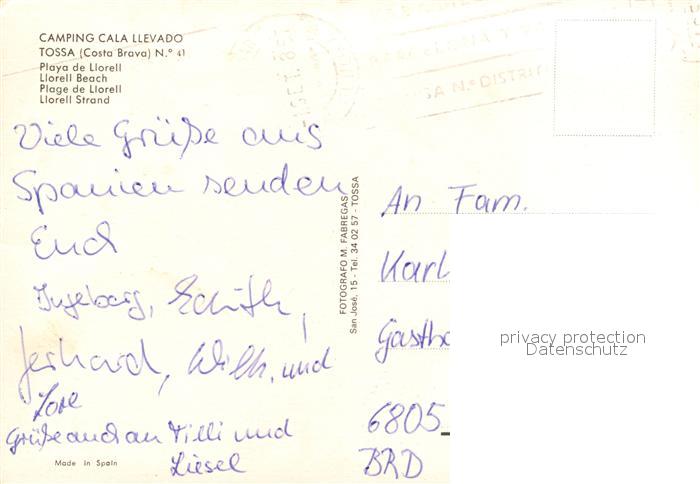 CAMPING CALA LLEVADO
TOSSA (Costa Brava) N.º 41
Playa de Llorell
Llorell Beach
Plage de Llorell
Llorell Strand
Viele Grüße aus
Spanien senden
Euch
Ingeborg, Edith,
Gerhard, Willi, und
Lore
Grüße auch an Tilli und
Liesel
Made in Spain
FOTOGRAFO M. FABREGAS
San José, 15 - Tel. 34 02 57 - TOSSA
BARCELONA
SA N.º DISTRI
An Fam.
Karl
Gasth
6805
BRD
privacy protection
Datenschutz